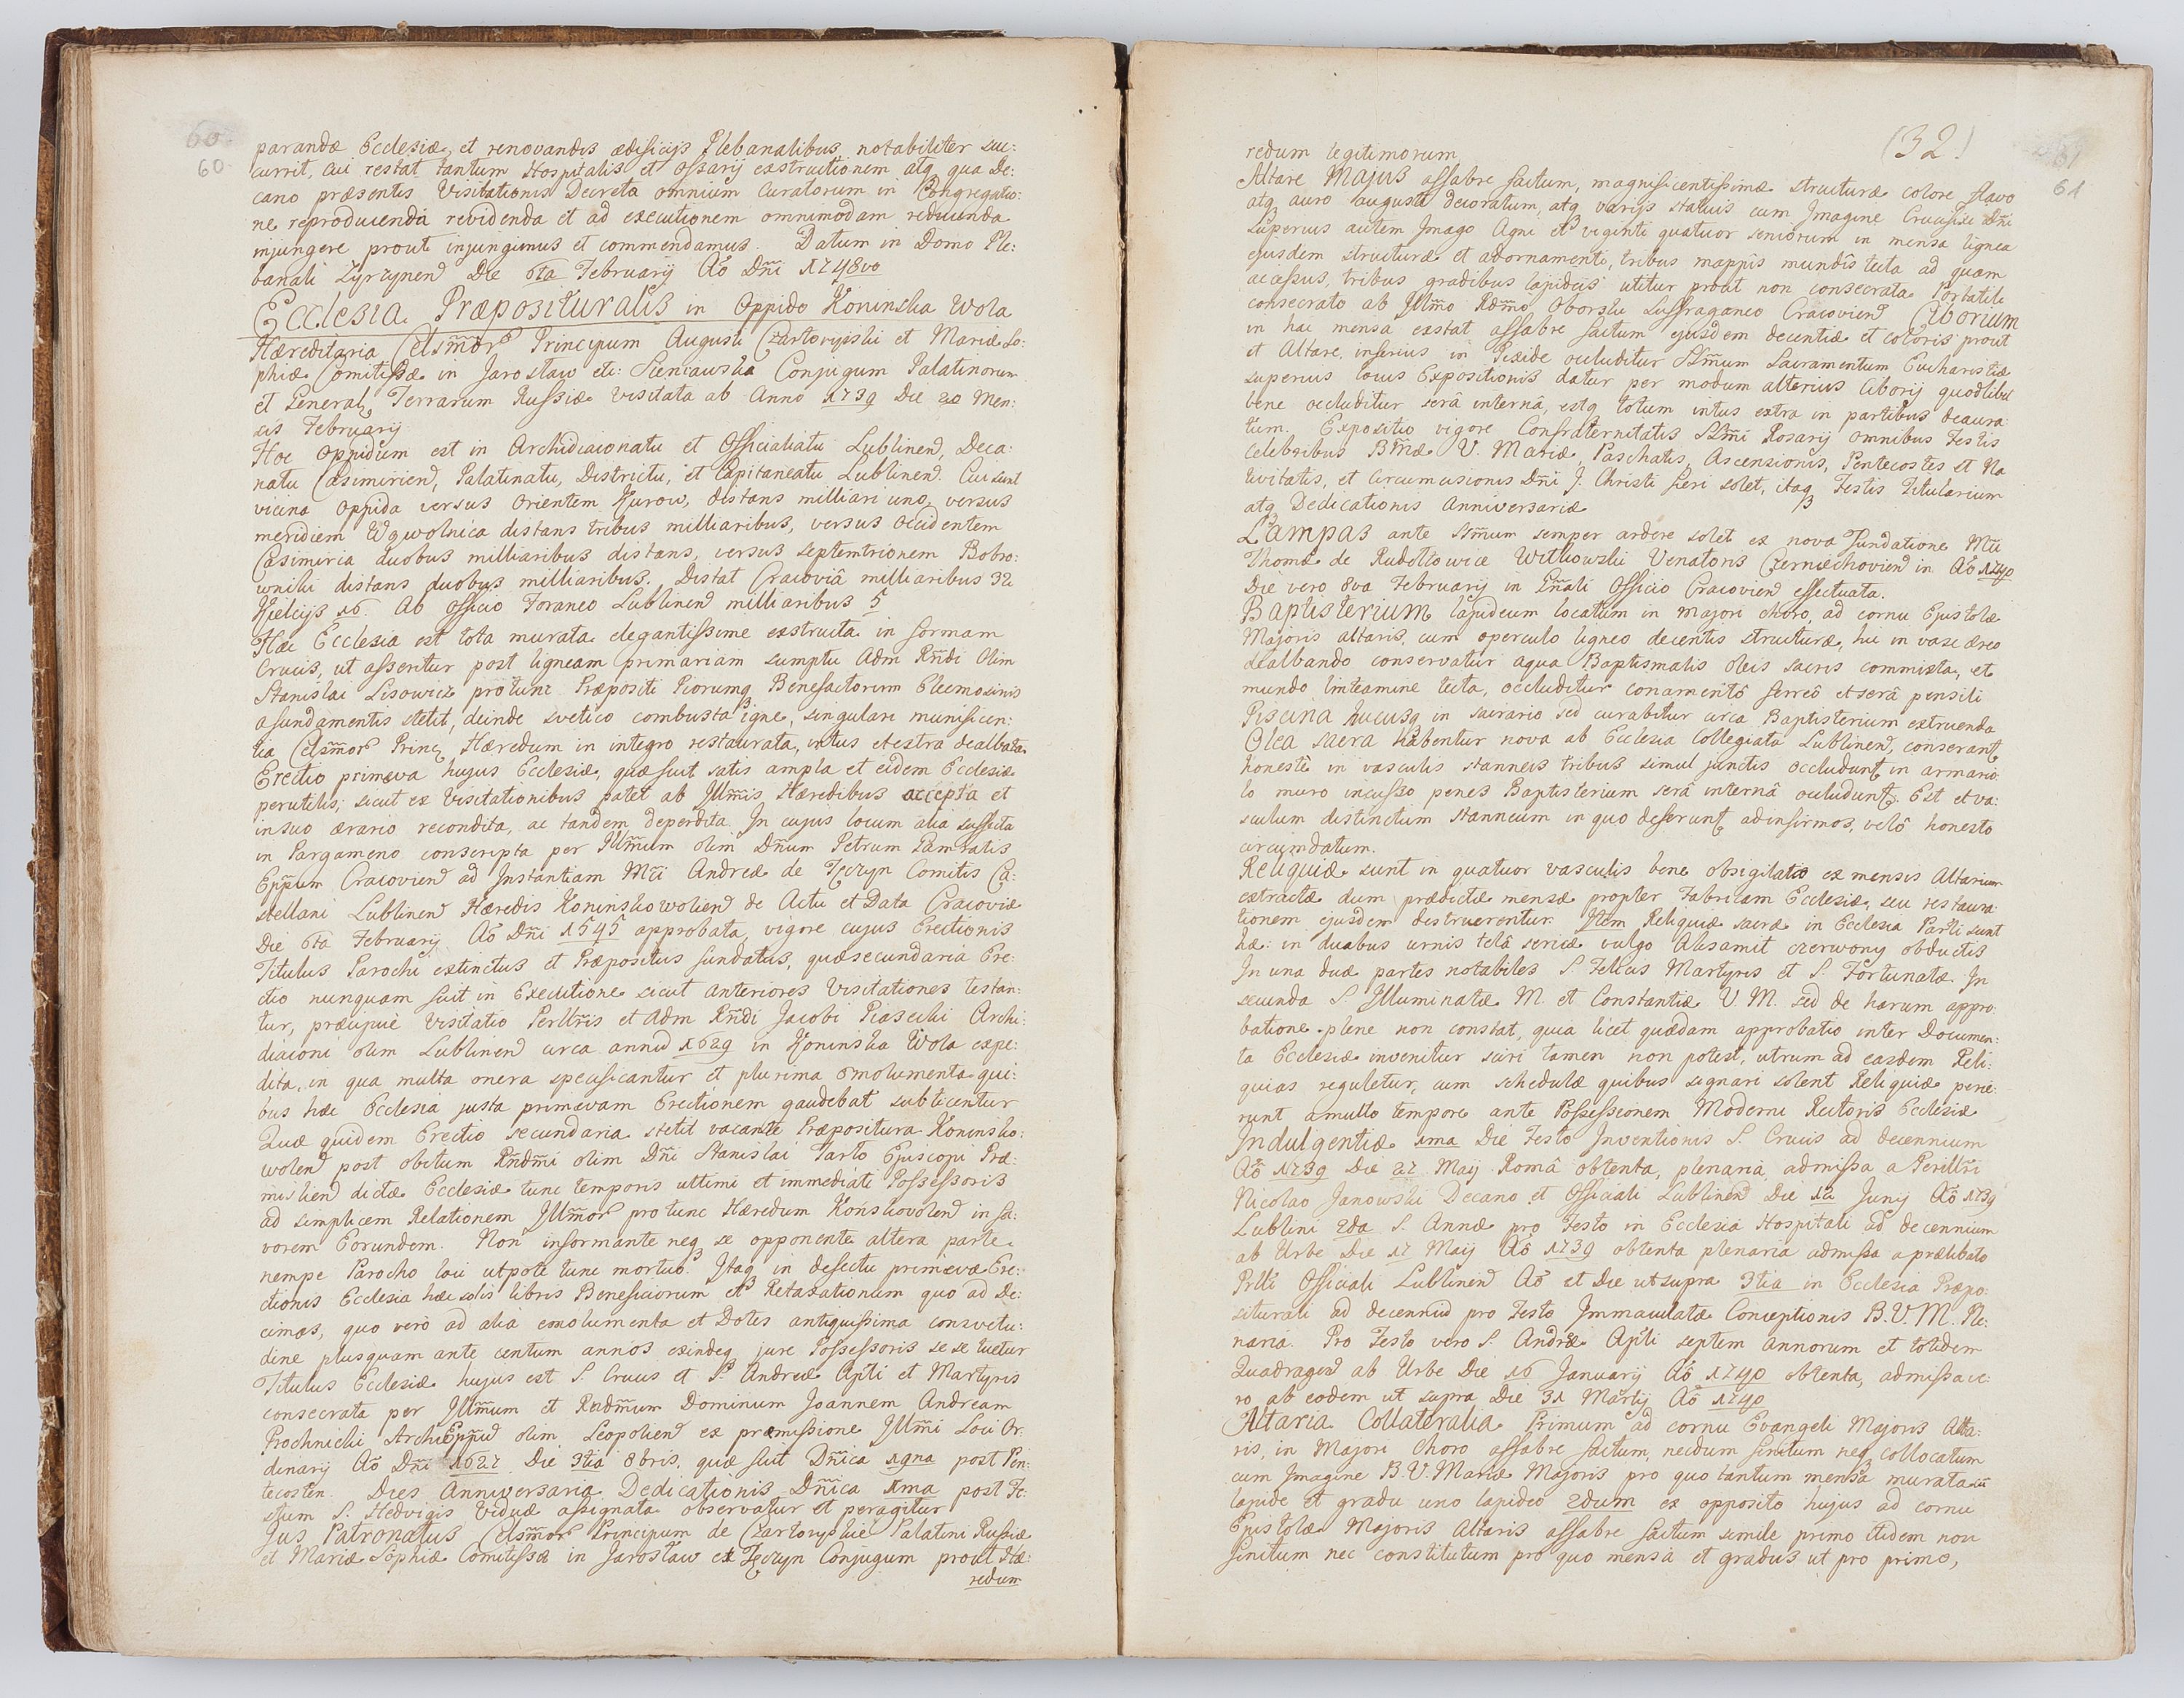 60
60
parandæ Ecclesiæ, et renovandis ædificijs Plebanalibus notabiliter suc:
currit, cui restat tantum Hospitalis et Ossarij exstructionem atq qua De:
cano præsentis Visitationis Decreta omnium Curatorum in Congregatio:
ne reproducenda revidenda et ad executionem omnimodam reducenda
injungere prout injungimus et commendamus. Datum in Domo Ple:
banali Zyrzynen Die 6ta Februarij Ao Dñi 1748vo
Ecclesia Præposituralis in Oppido Koninska Wola
Hæreditaria Celsmor Principum Augusti Czartoryski et Mariæ So:
phiæ Comitissæ in Jarosław etc: Sieniawska Conjugum Palatinorum
et General Terrarum Russiæ visitata ab Anno 1739 Die 20 Men:
sis Februarij
Hoc Oppidum est in Archidiaconatu et Officialatu Lublinen, Deca:
natu Casimirien, Palatinatu, Districtu, et Capitaneatu Lublinen. Cui sunt
vicina Oppida versus Orientem Kurow, distans milliari uno, versus
meridiem Wąwolnica distans tribus milliaribus, versus Occidentem
Casimiria duobus milliaribus distans, versus septemtrionem Bobro:
wniki distans duobus milliaribus. Distat Cracoviâ milliaribus 32
Kielcijs 16. Ab Officio Foraneo Lublinen milliaribus 5
Hæc Ecclesia est tota murata elegantissime exstructa in formam
Crucis, ut asseritur post ligneam primariam sumptu Adm Rñdi Olim
Stanislai Lisowicz protunc Præpositi Piorumq Benefactorum Eleemosinis
a fundamentis stetit, deinde svetico combusta igne, singulari munificen:
tia Celsmor Princ Hæredum in integro restaurata, intus et extra dealbata
Erectio primæva hujus Ecclesiæ, quæ fuit satis ampla et eidem Ecclesiæ
perutilis, sicut ex Visitationibus patet ab Jllmis Hæredibus accepta et
in suo ærario recondita, ac tandem deperdita. In cujus locum alia suffecta
in Pargameno conscripta per Jllmum olim Dñum Petrum Gamratis
Eppum Cracovien ad Jnstantiam Mci Andreæ de Tęczyn Comitis Ca:
stellani Lublinen Hæredis Koninskowolien de Actu et Data Cracoviæ
Die 6ta Februarij Ao Dñi 1545 approbata, vigore cujus Erectionis
Titulus Parochi extinctus et Præpositus fundatus, quæ secundaria Ere:
ctio nunquam fuit in Executione sicut anteriores Visitationes testan:
tur, præcipuè Visitatio Perllris et Adm Rñdi Jacobi Piasecki Archi:
diaconi olim Lublinen circa annū 1629 in Koninska Wola expe:
dita, in qua multa onera specificantur et plurima emolumenta qui:
bus hæc Ecclesia juxta primævam Erectionem gaudebat subticentur
Quæ quidem Erectio secundaria stetit vacante Præpositura Koninsko:
wolen post obitum Rñdmi olim Dñi Stanislai Tarło Episcopi Præ:
mislien dictæ Ecclesiæ tunc temporis ultimi et immediati Possessoris
ad simplicem Relationem Jllmor pro tunc Hæredum Końskovolen in fa:
vorem Eorundem. Non informante neq se opponente altera parte
nempe Parocho loci utpote tunc mortuo. Jtaq in defectu primævæ Ere:
ctionis Ecclesia hæc solis libris Beneficiorum et Retaxationum quo ad De:
cimas, quo verò ad alia emolumenta et Dotes antiquissima consvetu:
dine plusquam ante centum annos exindeq jure Possessoris se se tuetur
Titulus Ecclesiæ hujus est S. Crucis et S. Andreæ Apli et Martyris
consecrata per Jllmum et Rndmum Dominum Joannem Andream
Prochnicki ArchiEppū olim Leopolien ex præmissione Jllmi Loci Or:
dinarij Ao Dñi 1627 Die 3tia 8bris. quæ fuit Dñica 19na post Pen:
tecosten. Dies Anniversaria Dedicationis Dñica 1ma post Fe:
stum S. Hedvigis Viduæ assignata observatur et peragitur
Jus Patronatus Celsmor Principum de Czartoryskie Palatini Russiæ
et Mariæ Sophiæ Comitissæ in Jarosław et Tęczyn Conjugum prout Hæ:
redum
(32)
61
61
redum legitimorum
Altare Majus affabre factum, magnificentissimæ structuræ colore flavo
atq auro augustè decoratum, atq varijs statuis cum Jmagine Crucifixi Dñi
Superius autem Jmago Agni et viginti quatuor seniorum in mensa lignea
ejusdem structuræ et adornamenti, tribus mappis mundis tecta ad quam
accessus, tribus gradibus lapideis utitur prout non consecrata Portatili
consecrato ab Jllmo Rdmo Oborski Suffraganeo Cracovien Ciborium
in hac mensa exstat affabre factum ejusdem decentiæ et coloris prout
et Altare, inferius in Pixide occluditur SSmum Sacramentum Eucharistiæ
superius locus Expositionis datur per modum alterius Ciborij quodlibet
bene occluditur serâ internâ, estq totum intus extra in partibus deaura:
tum. Expositio vigore Confraternitatis SSmi Rosarij omnibus Festis
Celebribus Bmæ V. Mariæ, Paschatis, Ascensionis, Pentecostes et Na
tivitatis, et Circumcisionis Dñi J. Christi fieri solet, itaq Festis Titularium
atq Dedicationis Anniversariæ
Lampas ante SSmum semper ardere solet ex nova Fundatione Mci
Thomæ de Rudołtowice Witkowski Venatoris Czerniechovien in Ao 1740
Die vero 8va Februarij in Gñali Officio Cracovien effectuata.
Baptisterium lapideum locatum in majori choro, ad cornu Epistolæ
Majoris altaris, cum operculo ligneo decentis structuræ, hic in vase æreo
dealbando conservatur aqua Baptismalis oleis sacris commixta, et
mundo linteamine tecta, occluditur conamentô ferreô et serâ pensili
Piscina hucusq in sacrario sed curabitur circa Baptisterium extruenda
Olea sacra habentur nova ab Ecclesia Collegiata Lublinen, conserant
honestè in vasculis stanneis tribus simul junctis occludunt in armario:
lo muro incusso penes Baptisterium serâ internâ occludunt. Est et va:
sculum distinctum stanneum in quo deferunt ad infirmos, velô honesto
circumdatum.
Reliquiæ sunt in quatuor vasculis bene obsigilatio ex mensis Altarium
extractæ dum prædictæ mensæ propter Fabricam Ecclesiæ, seu restaura:
tionem ejusdem destruerentur. Jtem Reliquiæ sacræ in Ecclesia Parli sunt
hæ: in duabus urnis telâ sericæ vulgo Aksamit czerwony obductis
In una duæ partes notabiles S. Felicis Martyris et S. Fortunatæ. In
secunda S. Jlluminatæ M. et Constantiæ V. M. sed de harum appro:
batione plene non constat, quia licet quædam approbatio inter Documen:
ta Ecclesiæ invenitur sciri tamen non potest, utrum ad easdem Reli:
quias reguletur, cum schedulæ quibus signari solent Reliquiæ perie:
runt a multo tempore ante Possessionem Moderni Rectoris Ecclesiæ
Jndulgentiæ 1ma Die Festo Jnventionis S. Crucis ad decennium
Ao 1739 Die 27 Maij Româ obtenta, plenaria, admissa a Perillri
Nicolao Janowski Decano et Officiali Lublinen Die 12 Junij Ao 1739
Lublini 2da S. Annæ pro Festo in Ecclesia Hospitali ad decennium
ab Urbe Die 17 Maij Ao 1739 obtenta plenaria admissa a prælibato
Prlli Officiali Lublinen Ao et Die ut supra 3tia in Ecclesia Præpo:
siturali ad decenniū pro Festo Jmmaculatæ Conceptionis B.V.M. Ple:
naria. Pro Festo vero S. Andreæ Apli septem annorum et totidem
Quadragen ab Urbe Die 16 Januarij Ao 1740 obtenta, admissa ve:
ro ab eodem ut supra Die 31 Martij Ao 1740
Altaria Collateralia Primum ad cornu Evangeli Majoris Alta:
ris, in Majori Choro affabre factum, necdum finitum neq collocatum
cum Jmagine B.V. Mariæ Majoris pro quo tantum mensa murata cū
lapide et gradu uno lapideo 2dum ex opposito hujus ad cornu
Epistolæ Majoris Altaris affabre factum simile primo itidem non
finitum nec constitutum pro quo mensa et gradus ut pro primo,